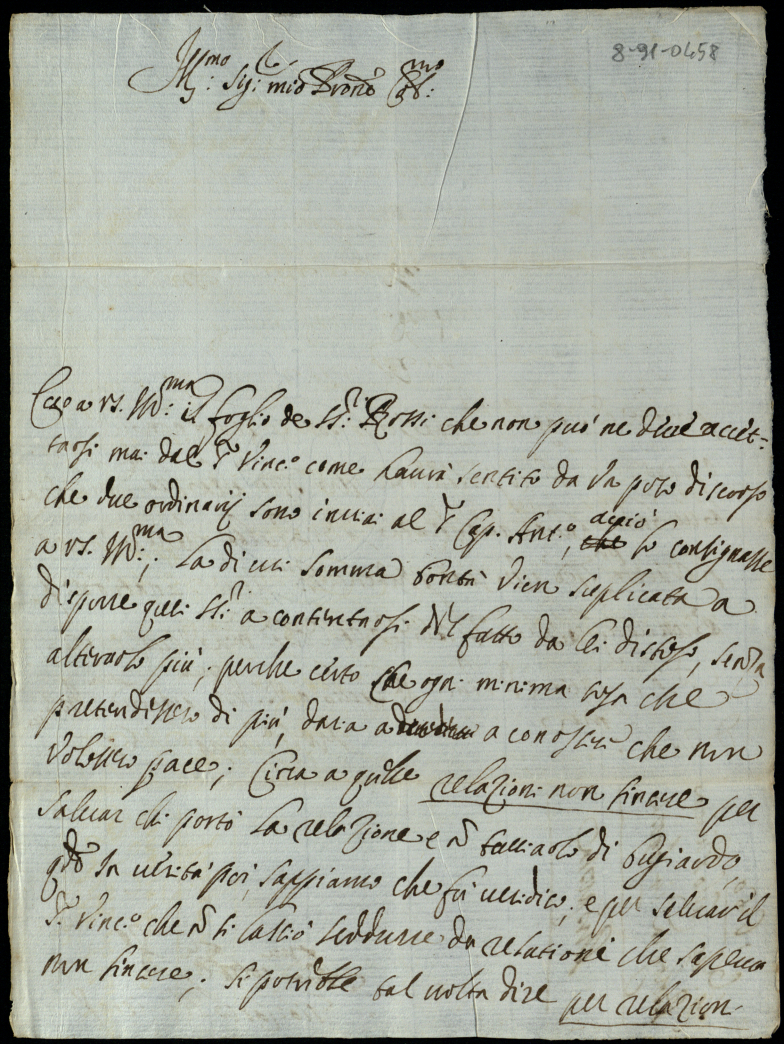 8-91-0458
Ill:mo Sig: mio Prone Col:mo
Ecco a vs. Ill:ma il foglio de SS:ri Rossi che non può ne deve accet-
tarsi mai dal Sr Vinc:o come haurà sentito da un poco discorso
che due ordinarij sono inviai al Sr Cap. Ant:o, acciò lo consignasse
a vs. Ill:ma; La di cui somma bontà vien suplicata a
disporre quei SS:ri a contentarsi del fatto da lei disteso, senza
alterarlo più; perche certo che ogni minima cosa che
pretendessero di più, daria a a conoscere che non
volessero pace; Circa a quelle relazioni non sincere per
salvar chi portò la relazione e ñ tacciarlo di bugiardo,
qdo in verità poi, sappiamo che fù veridico; e per salvar il
Sr Vinc:o che ñ si lasciò seddurre da relationi che sapeva
non sincere; si potrebbe tal volta dire per relazion-